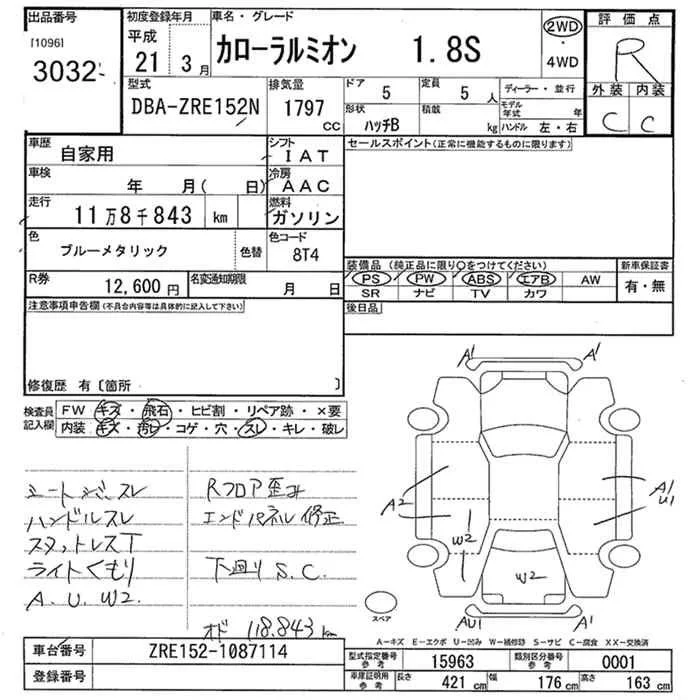 出品番号
[1096]
3032
初度登録年月
平成
21 3月
車名・グレード
カローラルミオン 1.8S
2WD
・
4WD
評価点
R
外装 内装
C C
型式
DBA-ZRE152N
排気量
1797
CC
ドア
5
定員
5 人
形状
ハッチB
積載
kg
ディーラー・並行
モデル年式 年
ハンドル 左・右
車歴
自家用
シフト
IAT
車検
年 月( 日)
冷房
AAC
走行
11万8千843 km
燃料
ガソリン
色
ブルーメタリック
色替
色コード
8T4
R券
12,600 円
名変通知期限
月 日
注意事項申告欄(不具合内容等は具体的に記入して下さい)
修復歴 有〔箇所 〕
セールスポイント(正常に機能するものに限ります)
装備品 (純正品に限り○をつけてください)
PS PW ABS エアB AW
SR ナビ TV カワ
新車保証書
有・無
後日品
検査員記入欄
FW キズ・飛石・ヒビ割・リペア跡・×要
内装 キズ・汚レ・コゲ・穴・スレ・キレ・破レ
シートシミ、スレ
ハンドルスレ
スタットレスT
ライトくもり
A. U. W2.
Rフロア歪み
エンドパネル修正
下回り S.C.
オド 118.843 km
A1 A1
A2
A1
U1
W2
W2
AU1 A1
スペア
A-キズ E-エクボ U-凹み W-補修跡 S-サビ C-腐食 XX-交換済
車台番号
ZRE152-1087114
登録番号
型式指定番号
参考
15963
類別区分番号
参考
0001
車庫証明用
参考
長さ
421 cm
幅
176 cm
高さ
163 cm